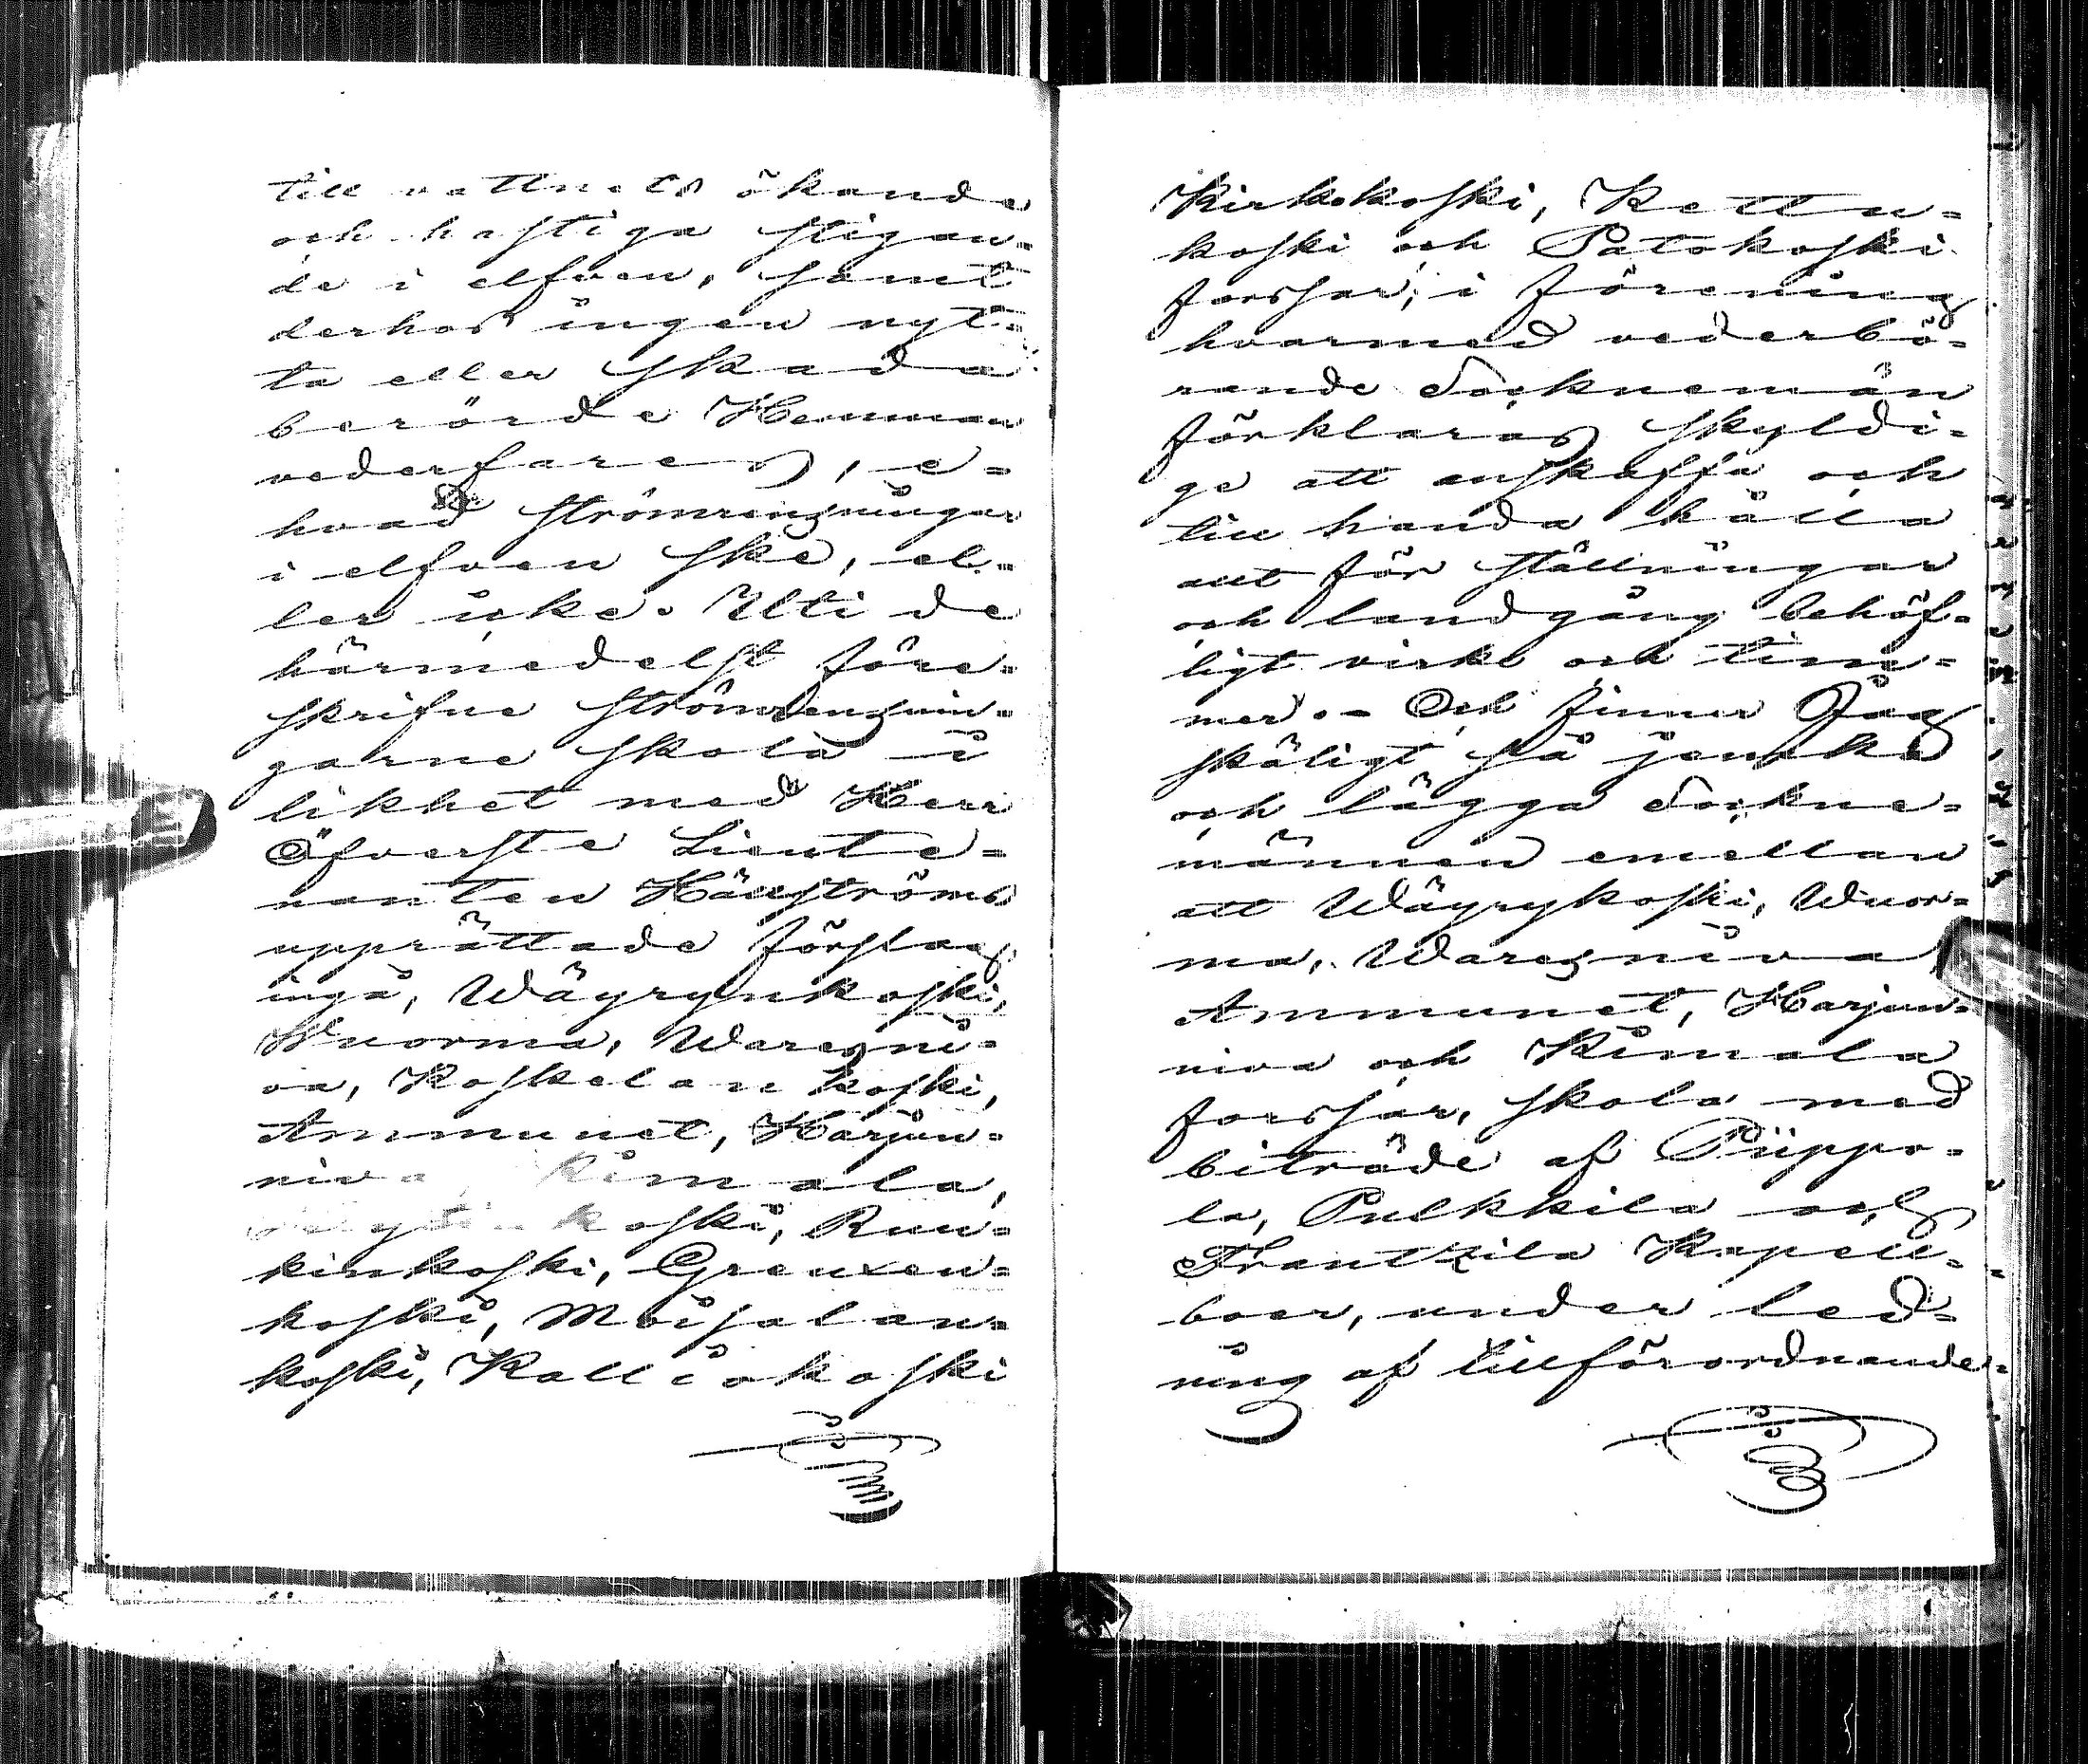 till vattnets ökande
och haftiga stigan=
de i elfven, samt
derhos ingen nyt=
ta eller skada
berörde Hemman
vederfares, e=
hvad strömrengningar
i elfven ske, el=
ler icke. Uti de
härmedelst före=
skrifne strömrengnin=
garne skola i
likhet med Herr
Öfverste Lieute=
nanten Hällströms
upprättade förslag
ingå, Wäyrynkoski,
Wuorma, Waresni=
va, Koskelankoski,
Ammunet, Harjun=
niva, Rimala,
koski, Ruu=
kinkoski, Greuxen=
koski, Moisalan=
koski, Kalliokoski
Kirkkokoski, Kettu=
koski och Patokoski
forssar; i förening
hvarmed vederbö=
rande Socknemän
förklaras skyldi=
ge att anskaffa och
till handa hålla
allt för ställningar
och landgång behöf=
ligt virke och tim=
mer. - Och finner Jag
skäligt så jemka
och lägga Sockne=
männen emellan
att Wäyrykoski, Wuor=
ma, Waresniva
Ammunet, Harjun=
niva och Rimala
forssar, skola med
biträde af Piippo=
la, Pulkkila och
Frantzila Kapell=
boer, under led=
ning af tillförordnande=